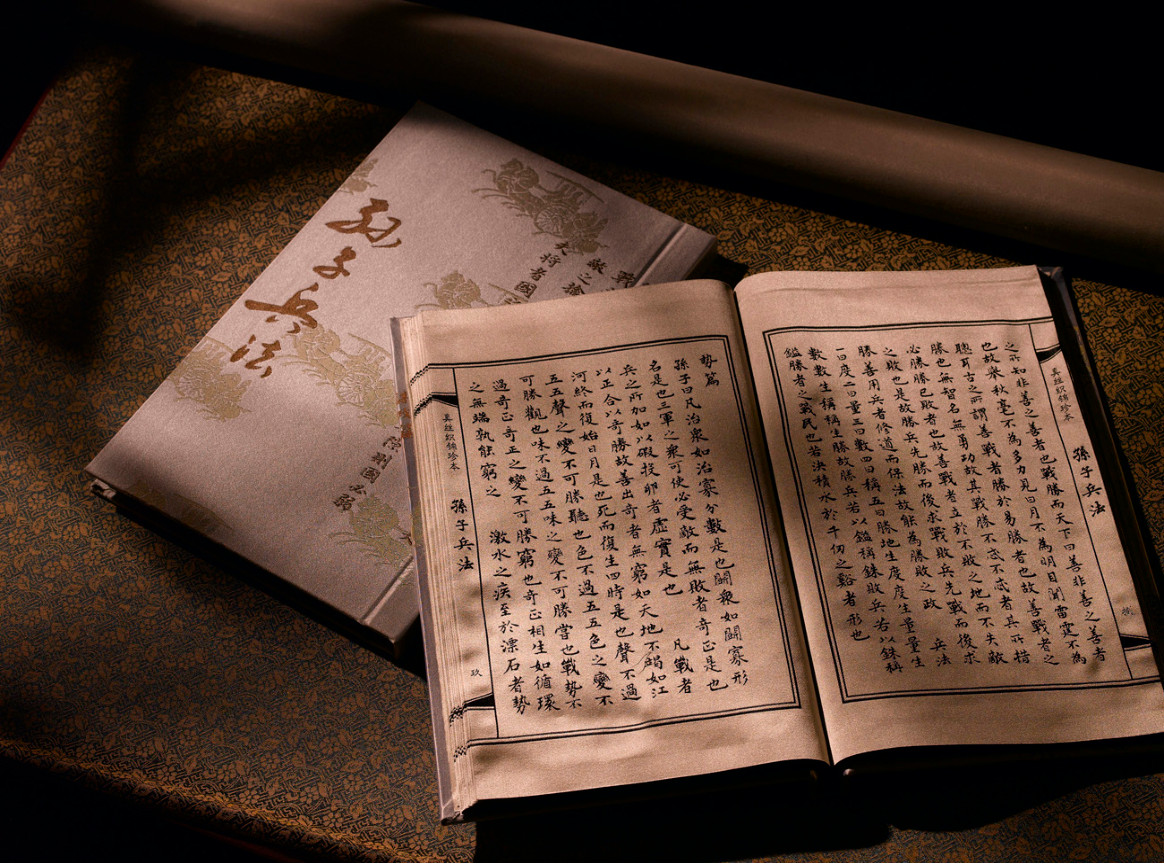 孫子兵法
夫將者國
真丝织锦珍本
孫子兵法
之所知非善之善者也戰勝而天下曰善非善之善者
也故舉秋毫不為多力見日月不為明目聞雷霆不為
聰耳古之所謂善戰者勝於易勝者也故善戰者之
勝也無智名無勇功故其戰勝不忒不忒者其所措
必勝勝已敗者也故善戰者立於不敗之地而不失敵
之敗也是故勝兵先勝而後求戰敗兵先戰而後求
勝善用兵者修道而保法故能為勝敗之政 兵法
一曰度二曰量三曰數四曰稱五曰勝地生度度生量量生
數數生稱稱生勝故勝兵若以鎰稱銖敗兵若以銖稱
鎰勝者之戰民也若決積水於千仞之谿者形也
勢篇
孫子曰凡治衆如治寡分數是也鬭衆如鬭寡形
名是也三軍之衆可使必受敵而無敗者奇正是也
兵之所加如以碬投卵者虛實是也 凡戰者
以正合以奇勝故善出奇者無窮如天地不竭如江
河終而復始日月是也死而復生四時是也聲不過
五五聲之變不可勝聽也色不過五五色之變不
可勝觀也味不過五五味之變不可勝嘗也戰勢不
過奇正奇正之變不可勝窮也奇正相生如循環
之無端孰能窮之 激水之疾至於漂石者勢
真丝织锦珍本
孫子兵法
玖